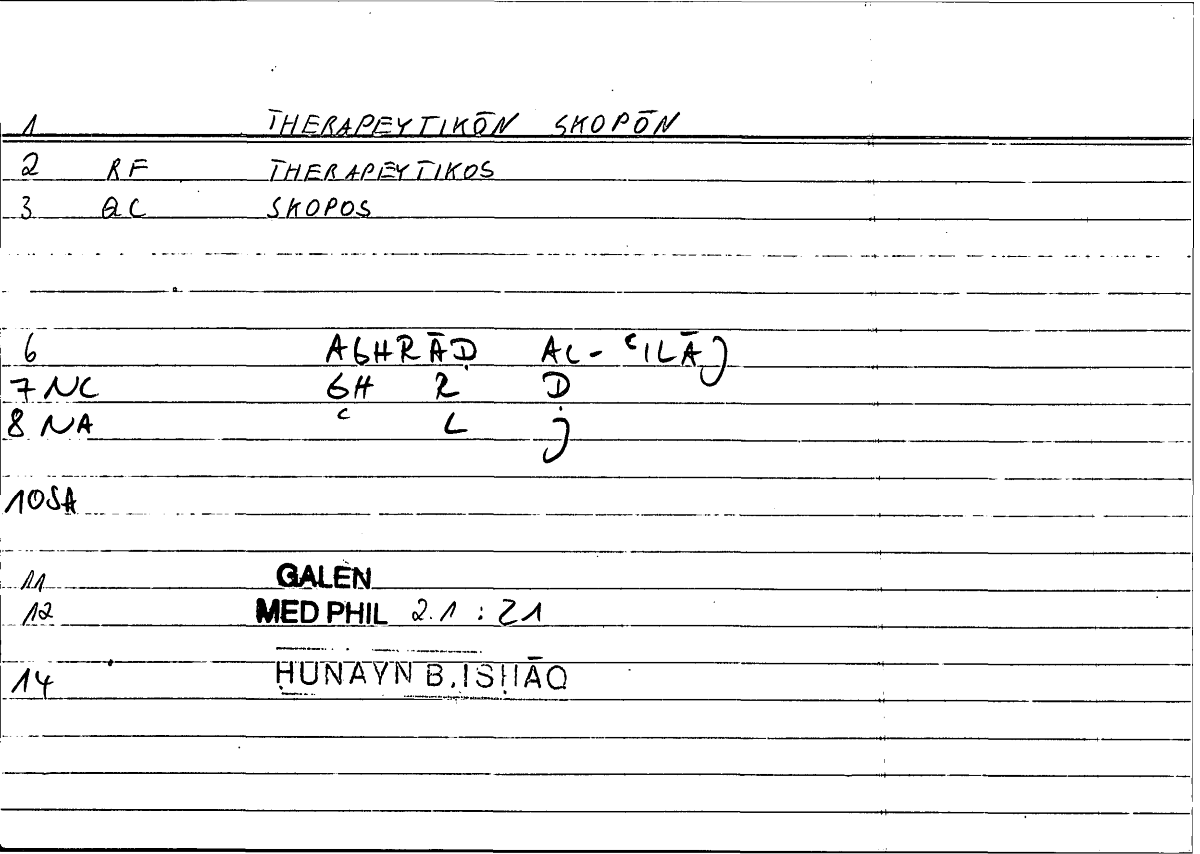 1 THERAPEYTIKŌN SKOPŌN
2 RF THERAPEYTIKOS
3 QC SKOPOS
6 AGHRĀḌ AL-ʿILĀJ
7 NC GH R Ḍ
8 NA ʿ L J
10SA
11 GALEN
12 MED PHIL 2.1 : 21
14 ḤUNAYN B. ISḤĀQ